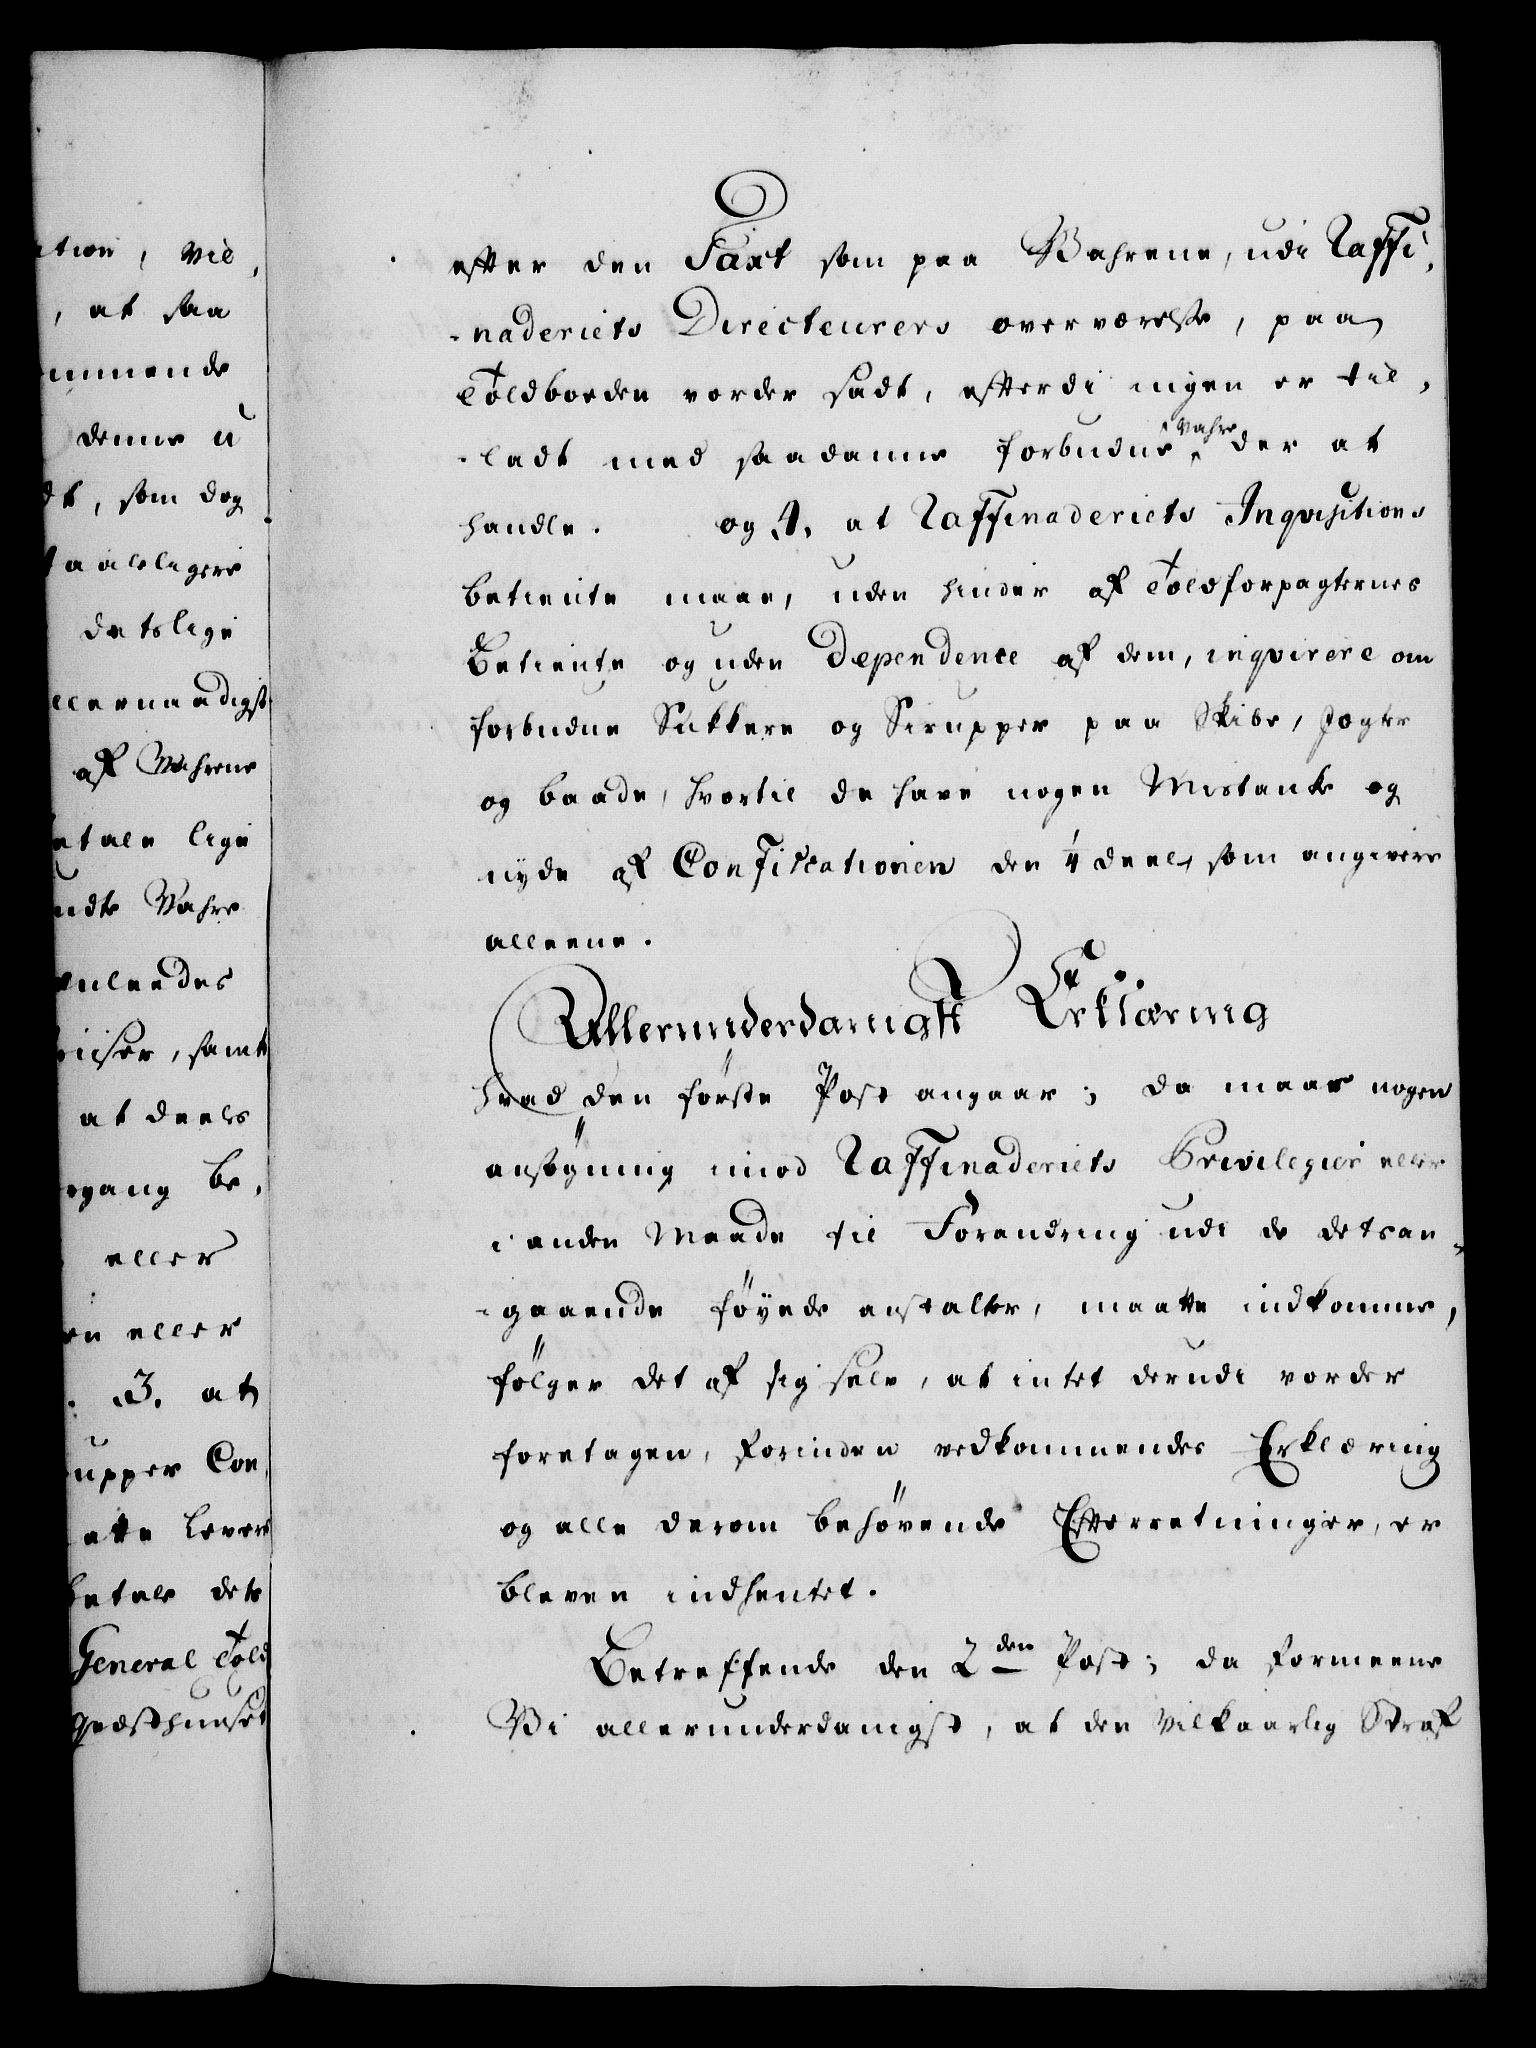 ation, vil,
, at saa
ommende
denne u
dt, som dog
taaleligere
detslige
allernaadigst
af Wahrene
etale lige
ndte Wahre
enleedes
riiser, samt
at deels
gang be,
eller
en eller
. 3. at
upper Con
atte levere
betale dete
General Told
Qvæsthuuset
efter den Taxt som paa Wahrene, udi Raffi,
-naderiets Directeurers overværelse, paa
Toldboeden vorder sadt, efterdi ingen er til,
-ladt med saadanne forbudne Vahre der at
handle. og 4, at Raffinaderiets Inqvisitions
betiente maae, uden hinder af Toldforpagternes
Betiente og uden Dependence af dem, inqvirere om
forbudne Sukkere og Sirupper paa Skibe, Jagter
og baade, hvortil de have nogen Mistanke og
nyde af Confiscationen den 1/4 deel, som angivere
alleene.
Allerunderdanigst Erklæring
Hvad den förste Post angaar; da maae nogen
ansögning imod Raffinaderiets Privilegier eller
i anden Maade til Forandring udi de detsan-
-gaaende föyede anstalter, maatte indkomme,
fölger det af sig selv, at intet derudi vorder
foretagen, forinden vedkommendes Erklæring
og alle derom behövende Efterretninger, er
bleven indhentet.
Betreffende den 2den Post; da formeene
Wi allerunderdanigst, at den vilkaarlig Straf